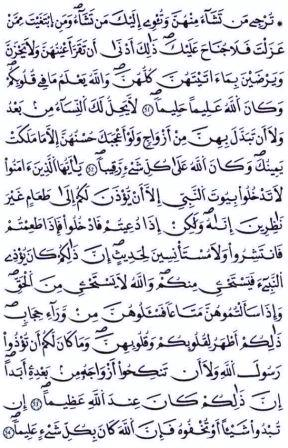 * تُرْجِي مَن تَشَآءُ مِنْهُنَّ وَتُـْٔوِىٓ إِلَيْكَ مَن تَشَآءُ ۖ وَمَنِ ٱبْتَغَيْتَ مِمَّنْ
عَزَلْتَ فَلَا جُنَاحَ عَلَيْكَ ۚ ذَٰلِكَ أَدْنَىٰٓ أَن تَقَرَّ أَعْيُنُهُنَّ وَلَا يَحْزَنَّ
وَيَرْضَيْنَ بِمَآ ءَاتَيْتَهُنَّ كُلُّهُنَّ ۚ وَٱللَّهُ يَعْلَمُ مَا فِى قُلُوبِكُمْ ۚ
وَكَانَ ٱللَّهُ عَلِيمًا حَلِيمًا ۝٥١ لَّا يَحِلُّ لَكَ ٱلنِّسَآءُ مِنۢ بَعْدُ
وَلَآ أَن تَبَدَّلَ بِهِنَّ مِنْ أَزْوَٰجٍ وَلَوْ أَعْجَبَكَ حُسْنُهُنَّ إِلَّا مَا مَلَكَتْ
يَمِينُكَ ۗ وَكَانَ ٱللَّهُ عَلَىٰ كُلِّ شَىْءٍ رَّقِيبًا ۝٥٢ يَـٰٓأَيُّهَا ٱلَّذِينَ ءَامَنُوا۟
لَا تَدْخُلُوا۟ بُيُوتَ ٱلنَّبِىِّ إِلَّآ أَن يُؤْذَنَ لَكُمْ إِلَىٰ طَعَامٍ غَيْرَ
نَـٰظِرِينَ إِنَىٰهُ وَلَـٰكِنْ إِذَا دُعِيتُمْ فَٱدْخُلُوا۟ فَإِذَا طَعِمْتُمْ
فَٱنتَشِرُوا۟ وَلَا مُسْتَـْٔنِسِينَ لِحَدِيثٍ ۚ إِنَّ ذَٰلِكُمْ كَانَ يُؤْذِى
ٱلنَّبِىَّ فَيَسْتَحْىِۦ مِنكُمْ ۖ وَٱللَّهُ لَا يَسْتَحْىِۦ مِنَ ٱلْحَقِّ ۚ
وَإِذَا سَأَلْتُمُوهُنَّ مَتَـٰعًا فَسْـَٔلُوهُنَّ مِن وَرَآءِ حِجَابٍ ۚ
ذَٰلِكُمْ أَطْهَرُ لِقُلُوبِكُمْ وَقُلُوبِهِنَّ ۚ وَمَا كَانَ لَكُمْ أَن تُؤْذُوا۟
رَسُولَ ٱللَّهِ وَلَآ أَن تَنكِحُوٓا۟ أَزْوَٰجَهُۥ مِنۢ بَعْدِهِۦٓ أَبَدًا ۚ
إِنَّ ذَٰلِكُمْ كَانَ عِندَ ٱللَّهِ عَظِيمًا ۝٥٣ إِن
تُبْدُوا۟ شَيْـًٔا أَوْ تُخْفُوهُ فَإِنَّ ٱللَّهَ كَانَ بِكُلِّ شَىْءٍ عَلِيمًا ۝٥٤